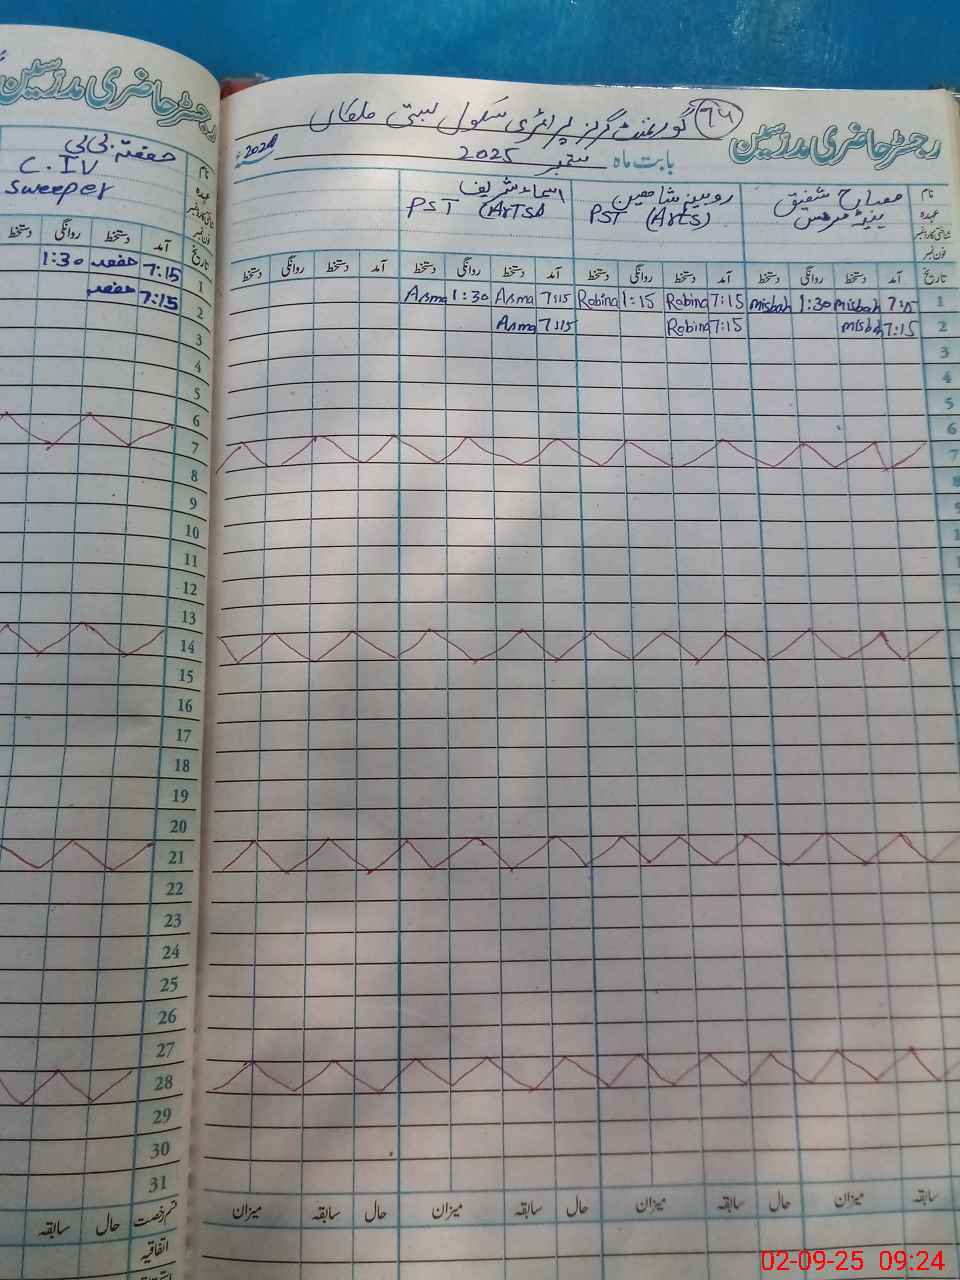 رجسٹر حاضری مدرسین
94
گورنمنٹ گرلز پرائمری سکول بستی ملکاں
بابت ماہ ستمبر 2025
نام مصباح شفیق روبینہ شاھین اسماء شریف
عہدہ ہیڈ مسٹریس PST (Arts) PST (Arts)
شناختی کارڈ نمبر
فون نمبر
تاریخ آمد دستخط روانگی دستخط آمد دستخط روانگی دستخط آمد دستخط روانگی دستخط آمد دستخط روانگی دستخط
1 7:15 Misbah 1:30 Misbah 7:15 Robina 1:15 Robina 7:15 Asma 1:30 Asma
2 7:15 Misbah 7:15 Robina 7:15 Asma
3
4
5
6
7
8
سابقہ میزان حال سابقہ میزان حال سابقہ میزان حال سابقہ میزان
رجسٹر حاضری مدرسین
نام
عہدہ C.IV
Sweeper
شناختی کارڈ نمبر
فون نمبر
تاریخ آمد دستخط روانگی دستخط
1 7:15 حفصہ 1:30
2 7:15 حفصہ
3
4
5
6
7
8
9
10
11
12
13
14
15
16
17
18
19
20
21
22
23
24
25
26
27
28
29
30
31
قسم رخصت حال سابقہ
اتفاقیہ
02-09-25 09:24